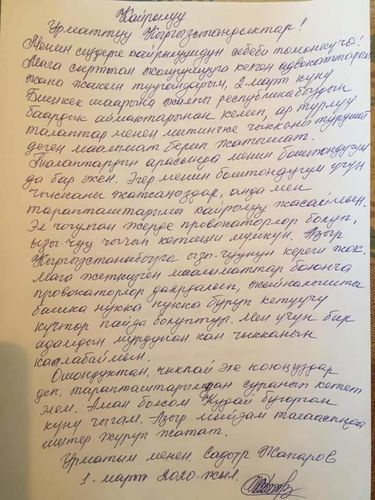 Кайрылуу
Урматтуу Кыргызстандыктар!
Менин сиздерге кайрылуумдун себеби төмөнкүчө!
Мага сырттан жолугушууга келген адвокаттарым
жана жакын туугандарым, 2-март күнү
Бишкек шаарына жалпы республикабыздын
баардык аймактарынан келип, ар түрлүү
талаптар менен митингге чыкканы турушат
деген маалымат берип жатышат.
Талаптардын арасында менин боштондугум
да бар экен. Эгер менин боштондугум үчүн
чыкканы жатсаңыздар, анда мен
тарапташтарыма кайрылуу жасаймын.
Эл чогулган жерде провокаторлор болуп,
ызы-чуу чыгып кетиши мүмкүн. Азыр
Кыргызстаныбызга ызы-чуунун кереги жок.
Мага жеткирген маалыматтар боюнча
провокаторлор даярдалып,
башка нукка буруп кетүүчү
күчтөр пайда болуптур. Мен үчүн бир
адамдын мурдунан кан чыкканын
каалабаймын.
Ошондуктан, чыкпай эле коюңуздар
деп, тарапташтарымдан суранып кетет
элем. Аман болсом Кудай буюрган
күнү чыгам. Азыр мыйзам талаасында
иштер жүрүп жатат.
Урматым менен Садыр Жапаров
1. март 2020-жыл.